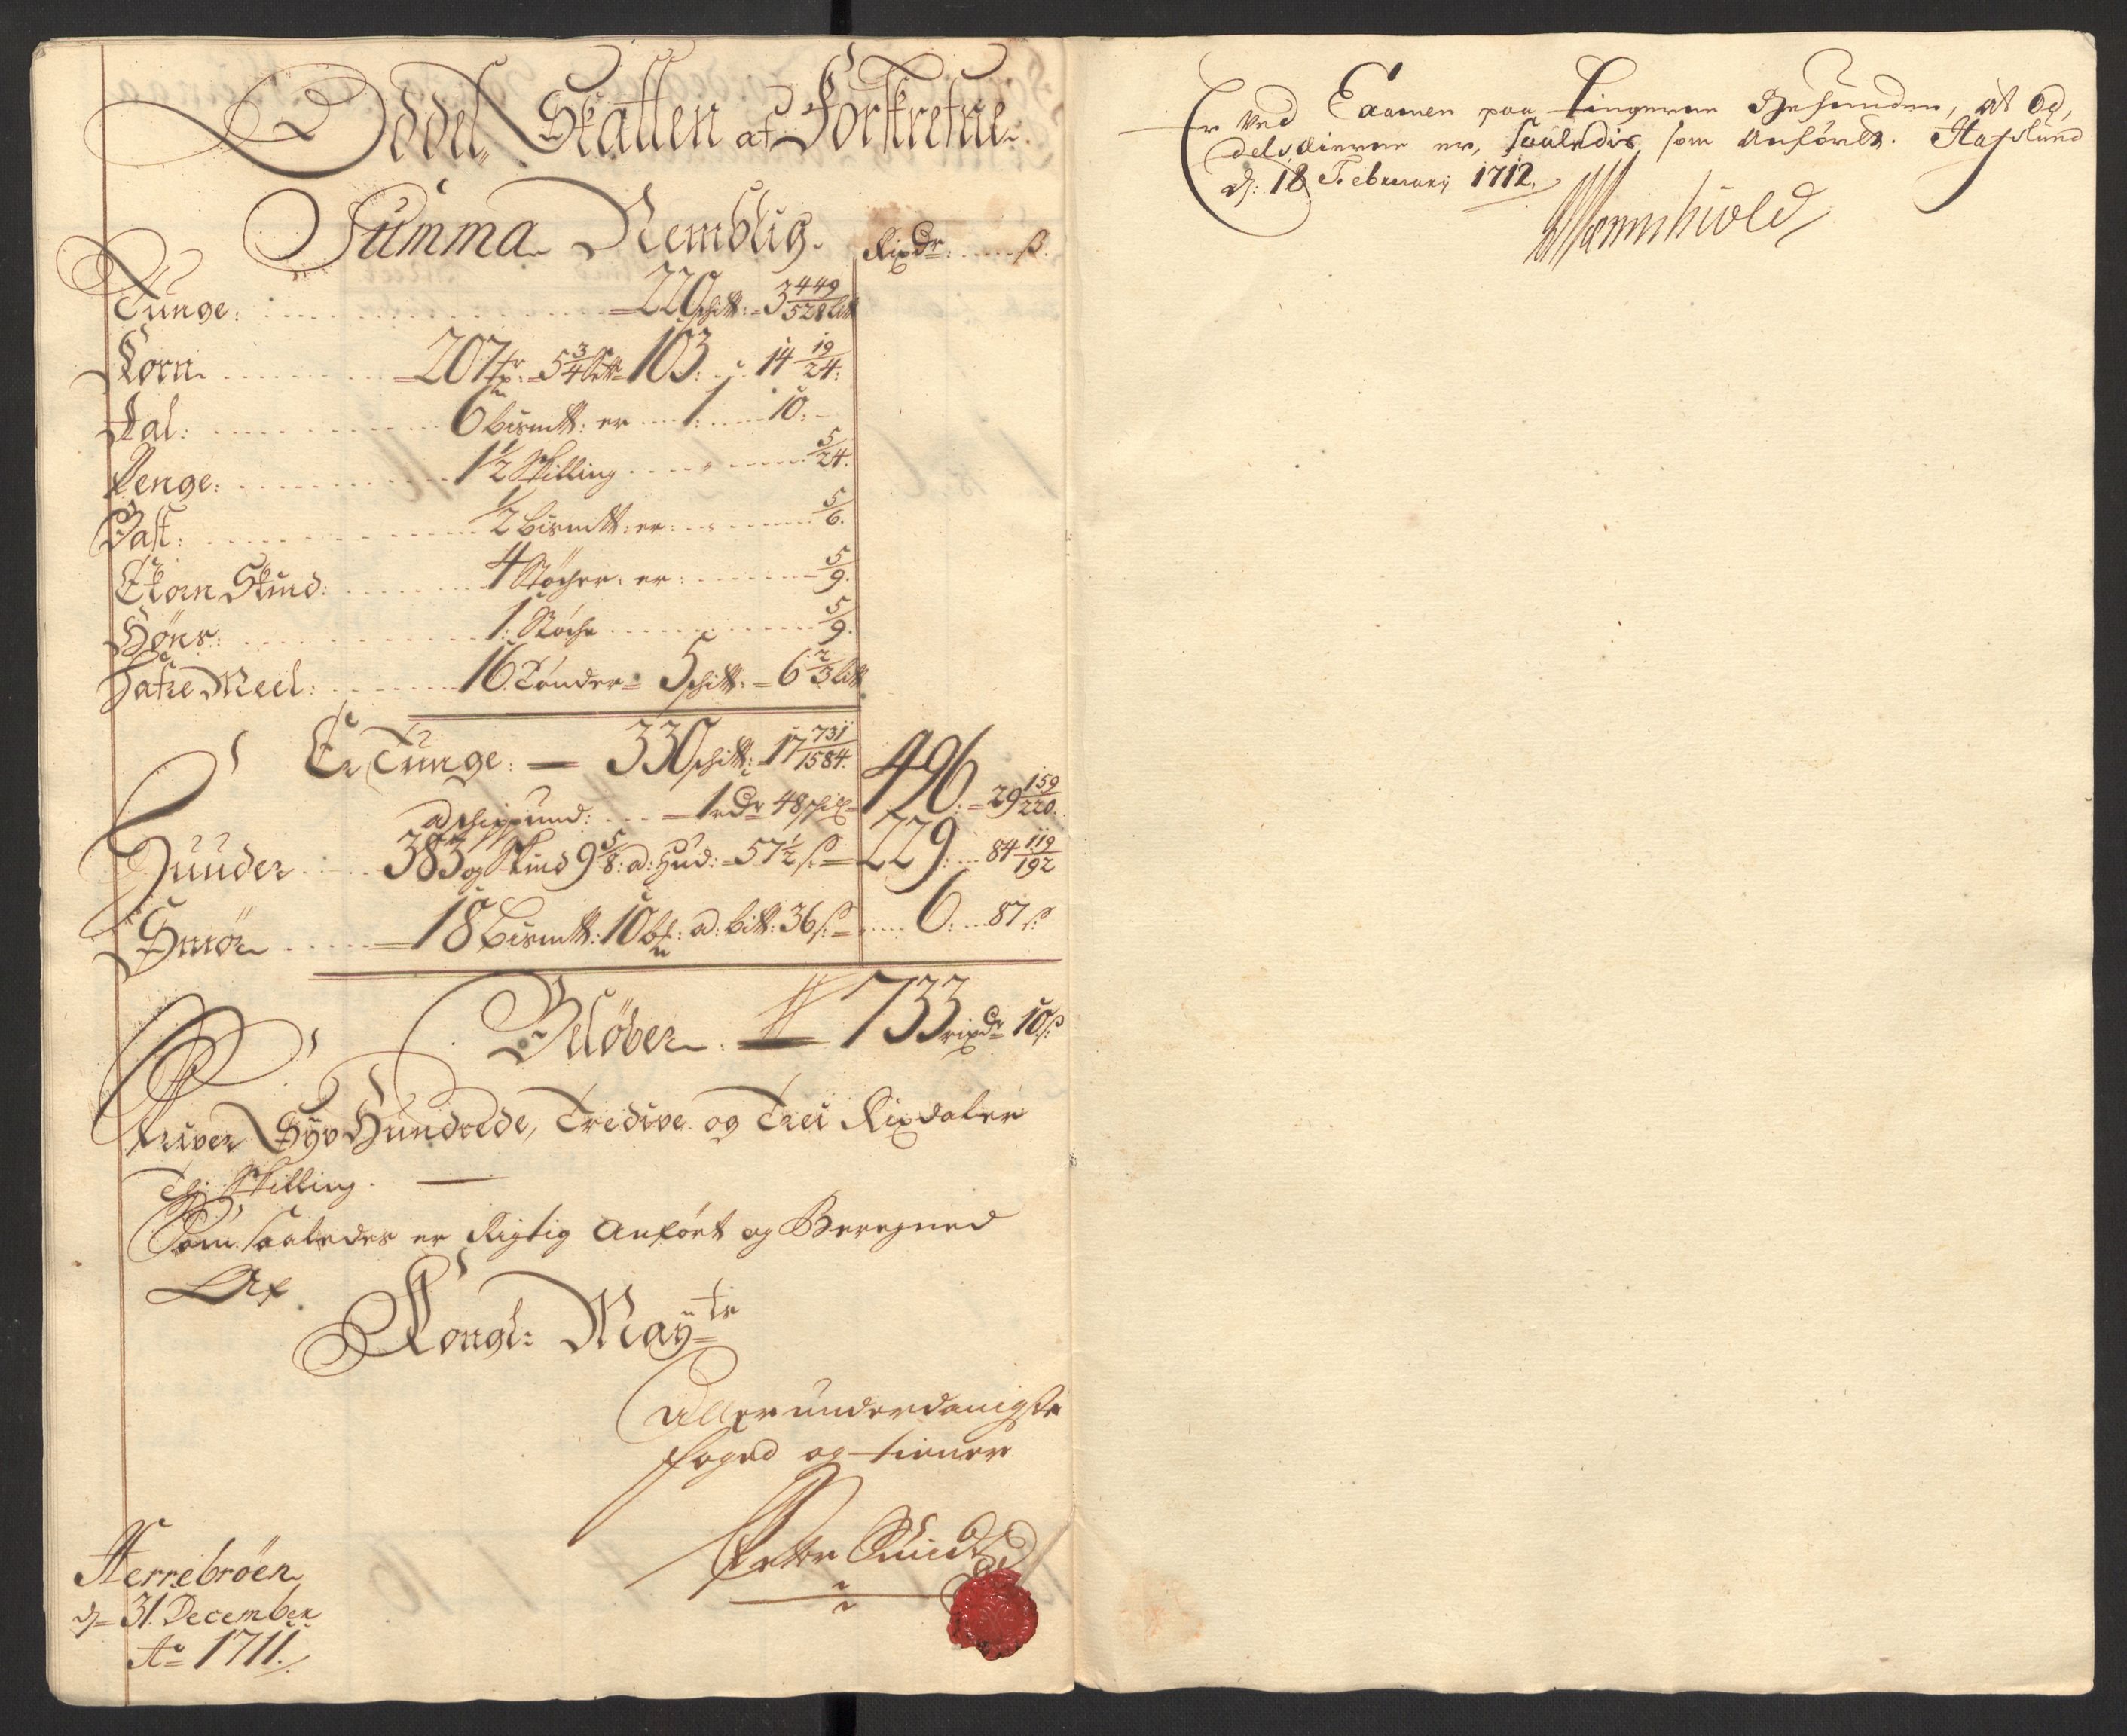 Oddel Skatten af Forskrefne
Summa Nemblig. Rixdr: ß.
Tunge: 220 sch℔: 3 449/528 l℔
Korn 207 tr: 5 3/4 Sett: 103: 14 19/24:
Aal: 6 bism℔: er 1: 10:
Penge: 1 1/2 Skilling 5/24.
Bast: 1/2 bism℔: er: 5/6.
Ekorn Skind: 4 Støcher: er: 5/9.
Høns: 1: Støche 5/9.
Hafre Meel: 16 Tønder 5 sch℔: 6 2/3 l℔
Er Tunge: 330 sch℔: 17 731/1584. 496: 29 159/220.
ad schippund: 1 rdr 48 schill
Huuder 383 og Skind 9 5/8: a: Hud: 57 1/2 ß 229: 84 119/192
Smør 18 bism℔: 10 a: b℔: 36 ß: 6: 87 ß
Beløber: 733 rixdr 10 ß:
Skriver Syv Hundrede, Tredive og Trei Rixdaler
Thj Skilling.
Som saaledes er Rigtig Anført og Beregned
Af
Kongl: Mayts
Allerunderdanigste
foged og tiener
Peter
Herrebröen
d. 31. December
Ao 1711.
Er ved Examen paa Tingerne Befunden, at Od,
dels,eierne er, saaledis som Anførts. Hafslund
d: 18 Februarij 1712.